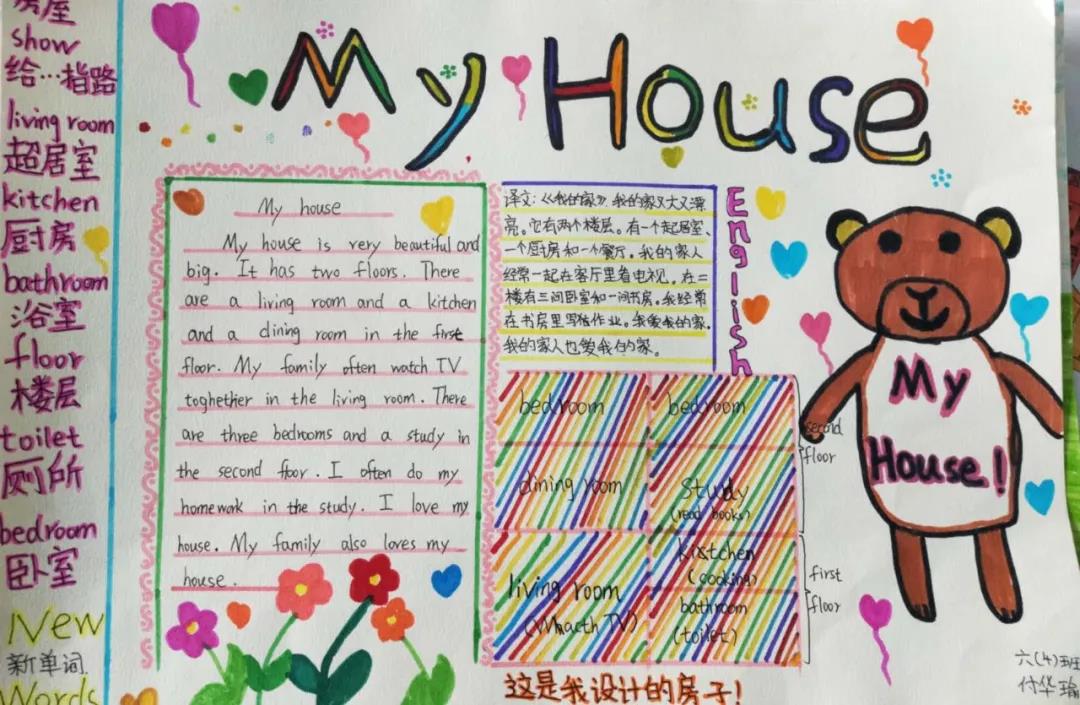 房屋
show
给…指路
living room
超居室
kitchen
厨房
bathroom
浴室
floor
楼层
toilet
厕所
bedroom
卧室
New
新单词
Words
My House
My house
My house is very beautiful and
big. It has two floors. There
are a living room and a kitchen
and a dining room in the first
floor. My family often watch TV
toghether in the living room. There
are three bedrooms and a study in
the second floor. I often do my
homework in the study. I love my
house. My family also loves my
house.
译文:《我的家》我的家又大又漂
亮。它有两个楼层。有一个起居室、
一个厨房和一个餐厅。我的家人
经常一起在客厅里看电视。在二
楼有三间卧室和一间书房。我经常
在书房里写作业。我爱我的家。
我的家人也爱我的家。
English
bedroom
bedroom
dining room
study
(read books)
second
floor
living room
kistchen
(cooking)
bathroom
(toilet)
first
floor
这是我设计的房子!
My
House!
六(4)班
付华瑜